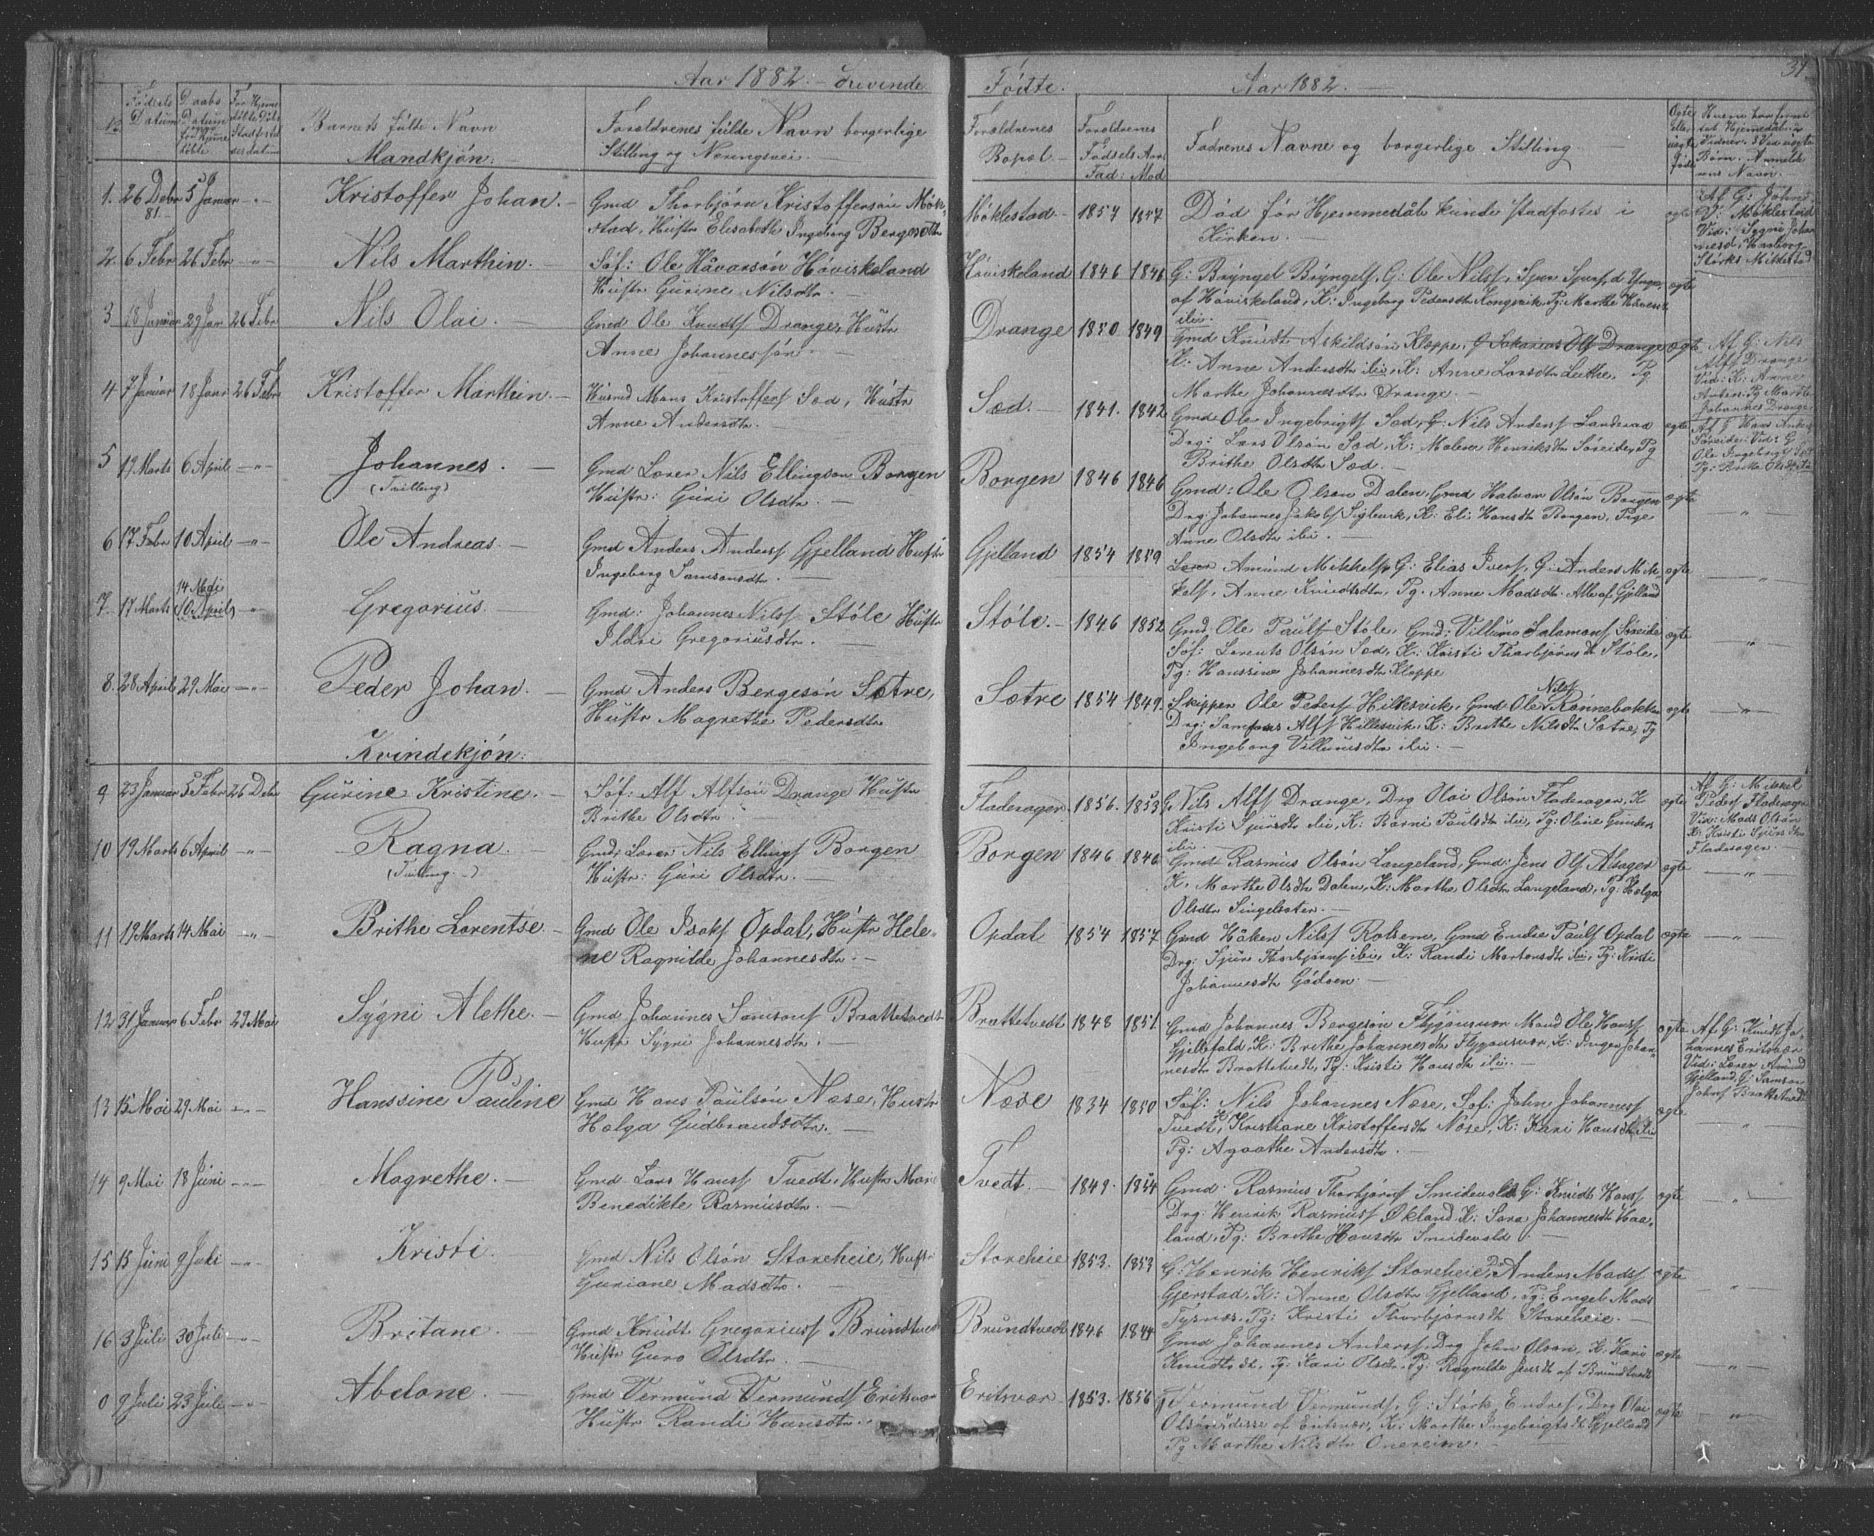 Aar 1882. – Levende
Fødte.
Aar 1882. –
31
No
Fødsels Datum
Daabs Datum
Barnets fulde Navn
Forældrenes fulde Navn borgerlige
Stilling og Næringsvei.
Forældrenes
Bopæl.
Forældrenes
Fødsels Aar.
Fad: Mod
Fadrenes Navne og borgerlige Stilling
Mandkjøn:
1. 26 Debr 81. 5 Januar – " – Kristoffer Johan. –
Gmd Thorbjørn Kristoffersøn Møk-
stad, Hustr Elisabeth Ingeborg Bergesdtr
Møklestad – 1857 1857
Død før Hjemmedåb kunde stadfæstes i
Kirken. –
ægte
2. 6 Febr 26 Febr – " – Nils Marthin. –
Søf: Ole Håvarsøn Høviskeland
Hustr Gurine Nilsdtr. –
Høviskeland 1846 1848
G: Brÿngel Brÿngels, G: Ole Nilss,
af Høviskeland, K: Ingeborg Pedersdtr Kongsvik, Pg: Marthe
ibi. –
ægte
3 18 Januar 29 Jan 26 Febr Nils Olai. –
Gmd Ole Knuds Drange, Hustr
Anne Johannessøn. –
Drange 1850 1849
Gmd Knudt Askildsøn Kloppe, G Johannes Ols Drange
K: Anne Andersdtr ibi, K: Anne Larsdtr Leithe, Pg
Marthe Johannesdtr Drange. –
ægte
Af G: Nils
Alfs Drange
Vid: K: Anne
Anders. Pg Marthe
Johannes Drange
4 7 Januar 18 Janr 26 Febr Kristoffer Marthin. –
Husmd Mons Kristoffers Sæd, Hustr
Anne Andersdtr. –
Sæd. – 1841. 1842
Gmd Ole Ingebrigts Sæd, G: Nils Anders Landraa
Drg: Lars Olsøn Sæd, K: Malene Henriksdtr Søreide, Pg
Brithe Olsdtr Sæd. –
ægte
5 19 Marts 6 April – " – Johannes. –
(Tvilling)
Gmd Lærer Nils Ellingsøn Borgen
Hustr: Guri Olsdtr. –
Borgen 1846 1846
Gmd: Ole Olsøn Dalen, Gmd Halvor Olsøn Borgen
Drg: Johannes Jakobs, K: Eli Hansdtr Borgen, Pige
Anne Olsdtr ibi. –
ægte
6 17 Febr 10 April – " – Ole Andreas. –
Gmd Anders Anders Gjelland Hustr
Ingeborg Samsonsdtr. –
Gjelland 1854 1859
Lærer Amund Mikkels, G: Elias Ivers, G: Anders Mik-
kels, Anne Knudsdtr, Pg. Anne Madsdtr. Alle af Gjelland
ægte
7. 17 Marts 14 Mai (10 April) – " – Gregorius. –
Gmd: Johannes Nilss Støle Hustr
Ildri Gregoriusdtr. –
Støle. – 1846 1852
Gmd: Ole Pauls Støle, Gmd: Villums Salamons Søreide
Søf: Lorents Olsøn Sæd, K: Kristi Thorbjørnsdtr Støle,
Pg: Hanssine Johannesdtr Kloppe
ægte
8. 28 April 29 Mai – " – Peder Johan. –
Gmd Anders Bergesøn Sætre,
Hustr Magrethe Pedersdtr
Sætre 1854 1849.
Skipper Ole Peders Hillesvik, Gmd Ole Nilss Rønnebakken
Drg: Alfs Hillesvik, K: Brithe Nilsdtr Sætre, Pg
Ingeborg Villumsdtr ibi. –
ægte
Kvindekjøn:
9 23 Januar 5 Febr 26 Debr Gurine Kristine. –
Søf: Alf Alfsøn Drange Hustr
Brithe Olsdtr. –
Fladerager. 1856. 1853
G: Nils Alfs Drange, Drg Olai Olsøn Fladerager, K
Kristi Sjursdtr ibi, K: Barni Paulsdtr ibi, Pg: Oline Gunders
ibi –
ægte
Af G: Mikkel
Peders Fladerager
Vid: Mads Olsøn
K: Kristi Sjursdtr
Fladerager.
10 19 Marts 6 April – " – Ragna. –
(Tvilling)
Gmd: Lærer Nils Ellings Borgen
Hustr: Guri Olsdtr. –
Borgen 1846 1846
Gmd Rasmus Olsøn Langeland, Gmd: Jens Ols Alsager
K. Marthe Olsdtr Dalen, K: Marthe Olsdtr Langeland, Pg: Helga
Olsdtr Singelsøter. –
ægte
11 19 Marts 14 Mai – " – Brithe Lorentse. –
Gmd Ole Isaks Opdal, Hustr Hele-
ne Ragnilde Johannesdtr. –
Opdal 1854 1857
Gmd Håken Nilss Rolsene, Gmd Endre Pauls Opdal
Drg: Sjur Thorbjørns ibi, K: Randi Mortensdtr ibi, Pg: Kristi
Johannesdtr Gåsøen. –
ægte
12 31 Januar 6 Febr 29 Mai Sÿgni Alethe. –
Gmd Johannes Samsons Brattetvedt
Hustr Sÿgni Johannesdtr. –
Brattetvedt 1848 1851
Gmd Johannes Bergesøn Flygansvær Mand Ole Hans
Gjellefald, K: Brithe Johannesdtr Flygansvær, K: Inger Johan-
nesdtr Brattetvedt, Pg: Kristi Hansdtr ibi. –
ægte
Af G: Knudt Jo-
hannes Eritsvær
Vid: Lærer Amund
Gjelland, G: Samson
Johns Brattetvedt
13 15 Mai 29 Mai – " – Hanssine Pauline
Gmd Hans Paulsøn Næse, Hustr
Helga Gudbrandsdtr. –
Næse 1834 1850
Søf: Nils Johannes Næse, Søf: John Johannes
Tvedt, K: Kristiane Kristoffersdtr Næse, K: Kari Hansdtr ibi
Pg: Agaathe Andersdtr. –
ægte
14 9 Mai 18 Juni – " – Magrethe. –
Gmd Lars Hans Tvedt, Hustr Mari
Benedikte Rasmusdtr. –
Tvedt. – 1849. 1854
Gmd. Rasmus Thorbjørns Smidevold G: Knudt Hans
Drg: Henrik Rasmus Økland K: Sara Johannesdtr Haa-
land, Pg: Brithe Hansdtr Smidevold. –
ægte
15 15 Juni 9 Juli – " – Kristi. –
Gmd Nils Olsøn Storeheie, Hustr
Guriane Madsdtr. –
Storeheie 1853. 1853
G: Henrik Henriks Storeheie, Drg Anders Mads
Gjerstad, K: Anne Olsdtr Gjelland, Pg: Engel Mads
Tysnes, Pg: Kristi Thorbjørnsdtr Storeheie. –
ægte
16 3 Juli 30 Juli – " – Britane. –
Gmd Knudt Gregoriuss Brundtvedt
Hustr Guro Olsdtr. –
Brundtvedt 1846 1844
Gmd Johannes Anders, Drg John Olsøn, K: Kari
Knudsdtr, Pg: Kari Olsdtr, Pg. Ragnilde Jensdtr af Brundtvedt
ægte
0 9 Juli 23 Juli – " – Abelone. –
Gmd Vermund Vermunds Eritsvær
Hustr Randi Hansdtr. –
Eritsvær 1853. 1856
G: Vermund Vermunds, G: Størk Endres, Drg Olai
Olsøn, disse af Eritsvær, K: Marthe Ingebrigtsdtr Gjelland
Pg Marthe Nilsdtr Onereim. –
ægte